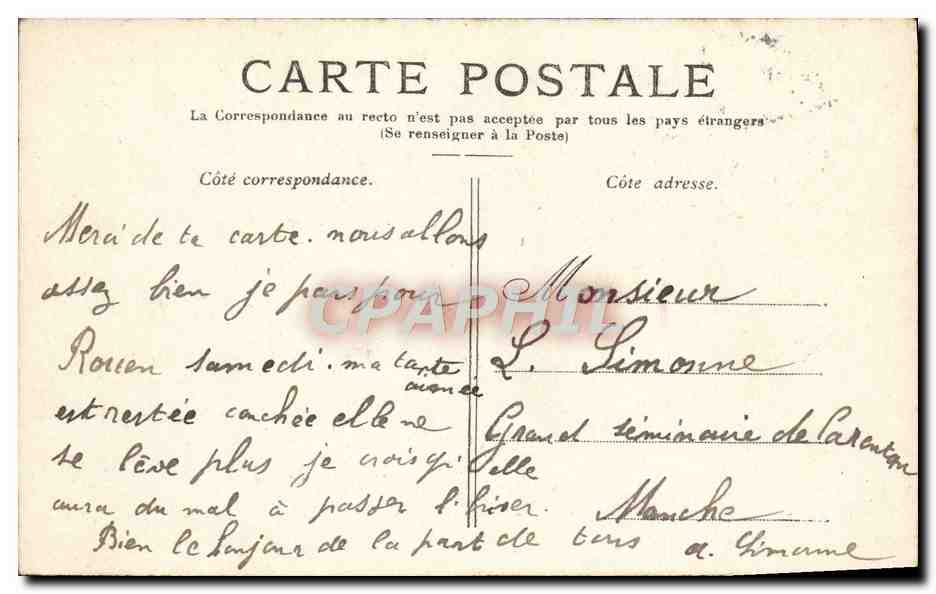 CARTE POSTALE
La Correspondance au recto n'est pas acceptée par tous les pays étrangers
(Se renseigner à la Poste)
Côté correspondance.
Côte adresse.
Merci de ta carte. nous allons
assez bien je pars pour
Rouen samedi. ma tante
est restée couchée elle ne
se lève plus je crois qu'elle
aura du mal à passer l'hiver.
Bien le bonjour de la part de tous
a. Simonne
Monsieur
L. Simonne
Grand séminaire de Carentan
Manche
CPAPHIL